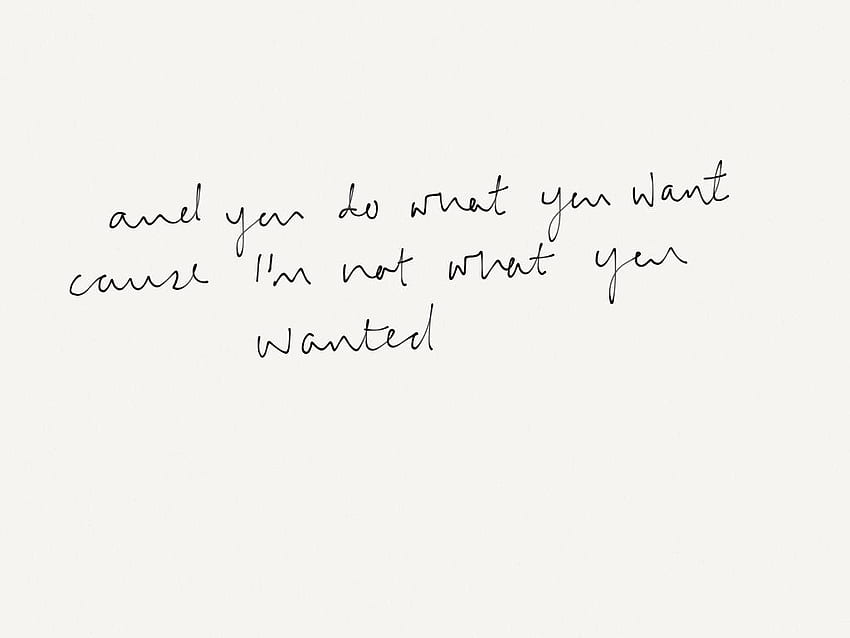 and you do what you want
cause I'm not what you
wanted